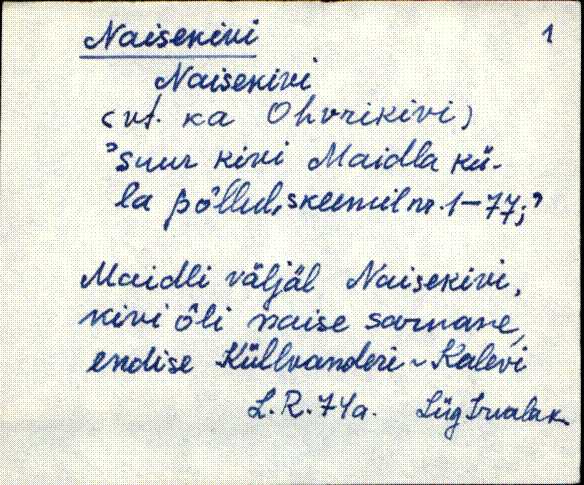 Naisekivi 1
Naisekivi
(vt. ka Ohvrikivi)
'suur kivi Maidla kü-
la põllul, skeemil nr. 1-77;'
Maidli väljäl Naisekivi,
kivi õli naise sarnane,
endise Küllvanderi ~ Kalevi
L.R. 74a. Lüg